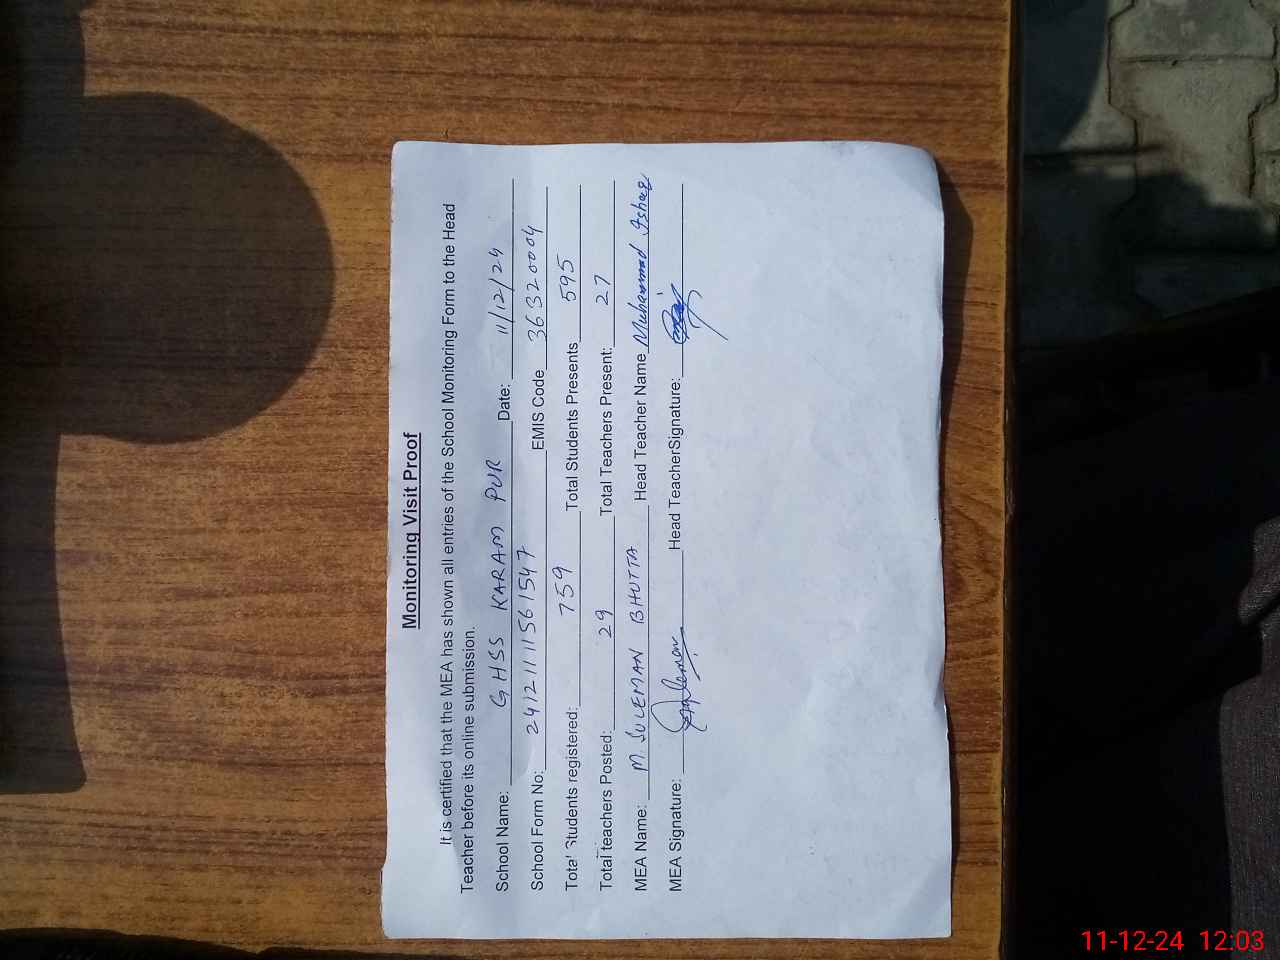 Monitoring Visit Proof
It is certified that the MEA has shown all entries of the School Monitoring Form to the Head
Teacher before its online submission.
School Name: GHSS KARAM PUR Date: 11/12/24
School Form No: 2412111561547 EMIS Code 36320004
Total Students registered: 759 Total Students Presents 595
Total teachers Posted: 29 Total Teachers Present: 27
MEA Name: M. SULEMAN BHUTTA Head Teacher Name Muhammad Ishaq
MEA Signature: Suleman Head TeacherSignature:
11-12-24 12:03